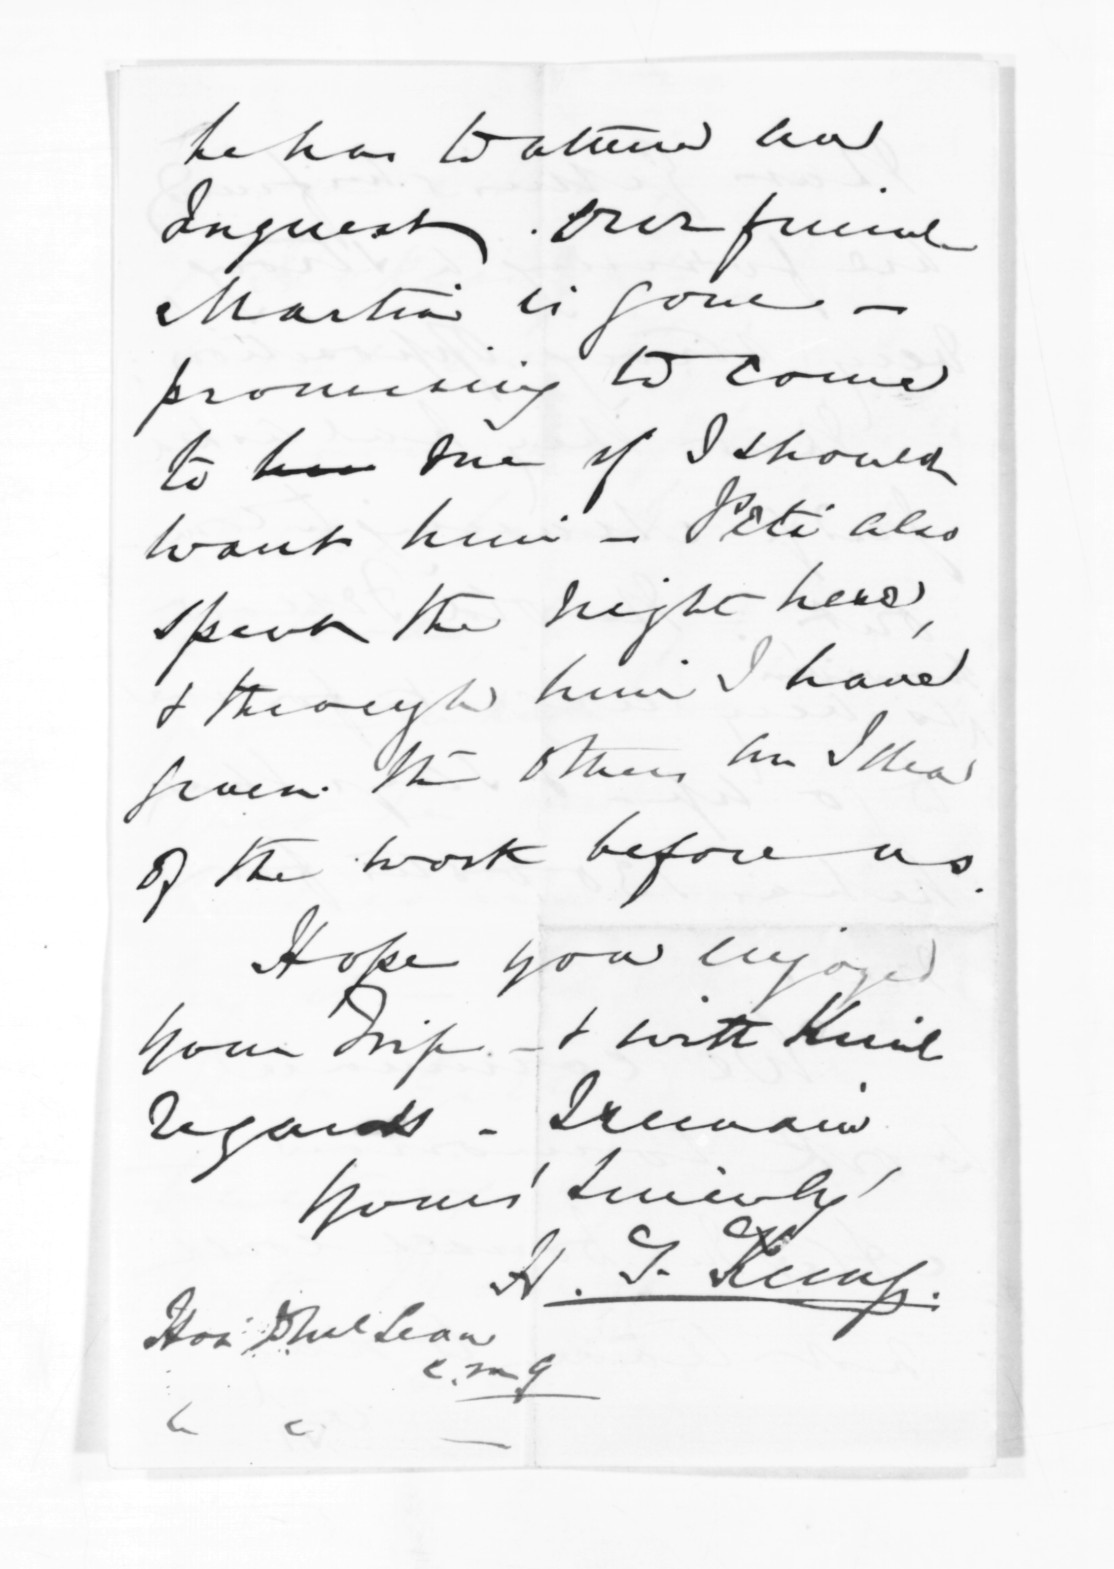 he has to attend an
Inquest. Our friend
Martin is gone —
promising to come
to me if I should
want him — Pita also
spent the night here,
& through him I have
given the others an Idea
of the work before us.
Hope you enjoyed
your Trip — & with Kind
regards - I remain
Yours Sincerely
H. T. Kemp.
Hon: D McLean
C.M.G
&c